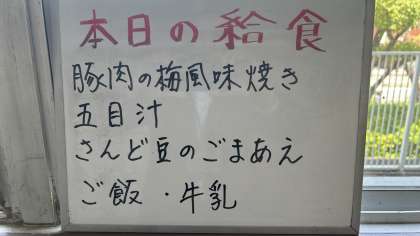 本日の給食
豚肉の梅風味焼き
五目汁
さんど豆のごまあえ
ご飯・牛乳